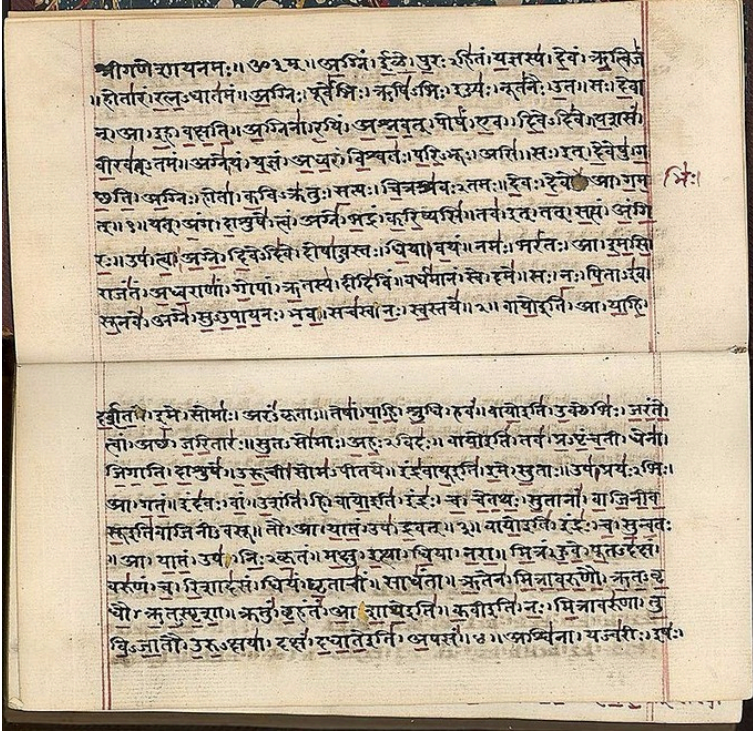 श्रीगणेशायनमः॥ॐ३म्॥अग्निं।ईळे।पुरःऽहितं।यज्ञस्य।देवं।ऋत्विजं
॥होतारं।रत्नऽधातमं॥अग्निः।पूर्वेभिः।ऋषिऽभिः।ईड्यः।नूतनैः।उत॥सः।देवा
न्।आ।इह।वक्षति॥अग्निना।रयिं।अश्नवत्।पोषं।एव।दिवेऽदिवे॥यशसं।
वीरवत्ऽतमं॥अग्नेयं।यज्ञं।अध्वरं।विश्वतः।परिऽभूः।असि॥सः।इत्।देवेषु।ग
च्छति।अग्निः।होता।कविऽक्रतुः।सत्यः।चित्रश्रवःऽतमः॥देवः।देवे।आ।गम
भिः।
त्॥१॥यत्।अंग।दाशुषे।त्वं।अग्ने।भद्रं।करिष्यसि॥तव।इत्।तत्।सत्यं।अंगि
रः॥उप।त्वा।अग्ने।दिवेऽदिवे।दोषाऽवस्तः।धिया।वयं॥नमः।भरंतः।आ।इमसि।
राजंतं।अध्वराणां।गोपां।ऋतस्य।दीदिविं॥वर्धमानं।स्वे।दमे॥सः।नः।पिताऽइव।
सूनवे।अग्ने।सुऽउपायनः।भव॥सचस्व।नः।स्वस्तये॥२॥वायोइति।आ।याहि।
दर्शत।इमे।सोमाः।अरंऽकृताः॥तेषां।पाहि।श्रुधि।हवं॥वायोइति।उक्थेभिः।जरंते।
त्वां।अच्छ।जरितारः॥सुतऽसोमाः।अहःऽविदः॥वायोइति।तव।प्रऽपृंचती।धेना।
जिगाति।दाशुषे॥उरूची।सोमऽपीतये॥इंद्रवायूइति।इमे।सुताः॥उप।प्रयःऽभिः।
आ।गतं॥इंदवः।वां।उशंति।हि॥वायोइति।इंद्रः।च।चेतथः।सुतानां।वाजिनीव
सूइतिवाजिनीऽवसू॥तौ।आ।यातं।उप।द्रवत्॥३॥वायोइति।इंद्रः।च।सुन्वतः
॥आ।यातं।उप।निःऽकृतं॥मक्षु।इत्था।धिया।नरा॥मित्रं।हुवे।पूतऽदक्षं।
वरुणं।च।रिशादसं॥धियं।घृताचीं।साधंता॥ऋतेन।मित्रावरुणौ।ऋतऽवृ
धौ।ऋतऽस्पृशा॥क्रतुं।बृहंतं।आशाथेइति॥कवीइति।नः।मित्रावरुणा।तु
विऽजातौ।उरुऽक्षया॥दक्षं।दधातेइति।अपसं॥४॥अश्विना।यज्वरीः।इषः।